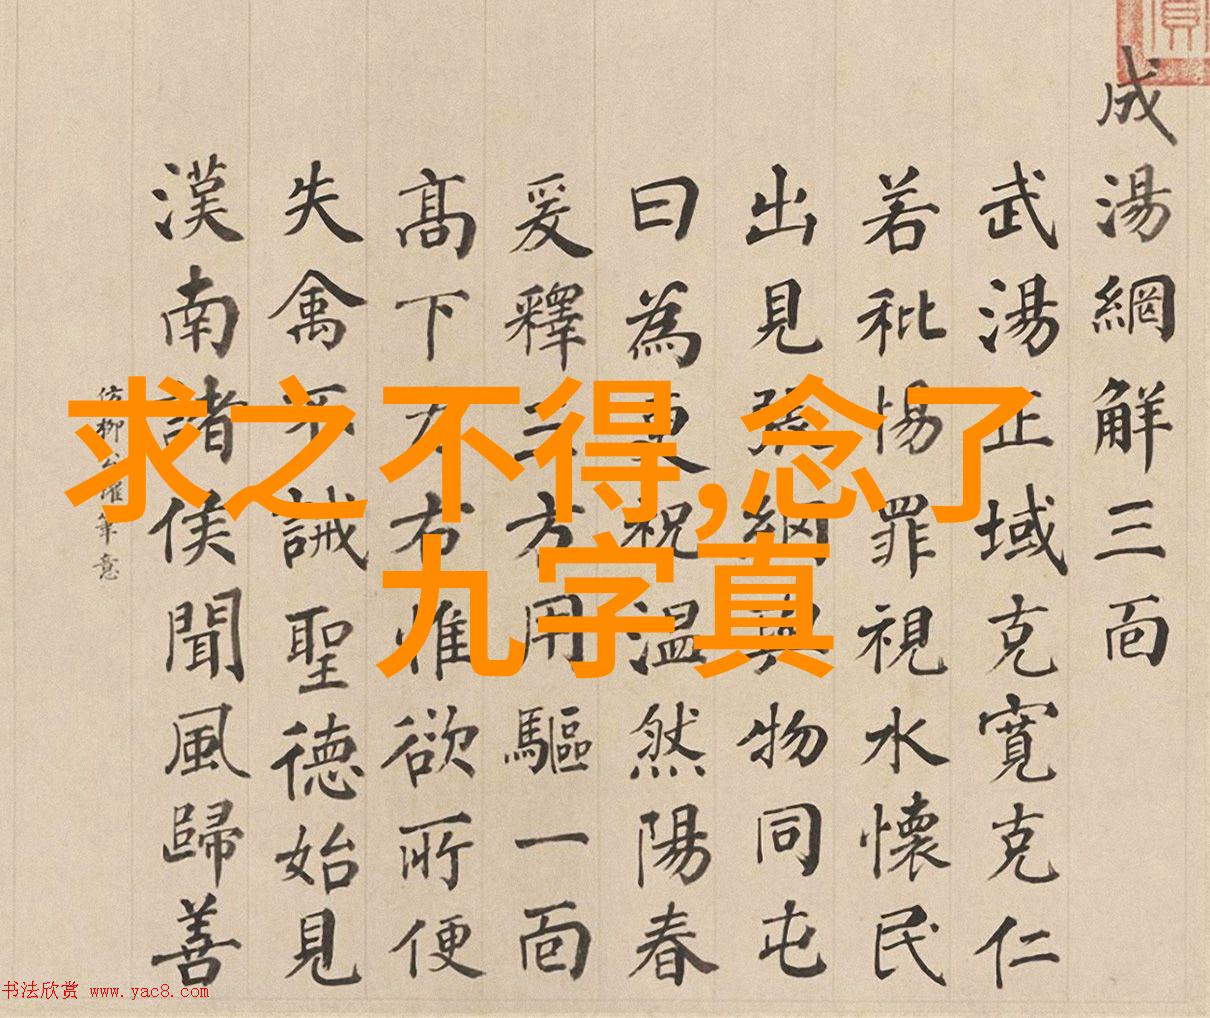 成湯網解三面
武湯正域克寬克仁
若秕惕罪視水懷民
出見張網與物同屯
曰為更祝温然陽春
爰釋三方用驅一面
髙下左右惟欲所便
失禽不誡聖德始見
漢南諸侯聞風歸善
仿柳公權筆意
求之不得,念了
九字真
书法欣赏 www.yac8.com